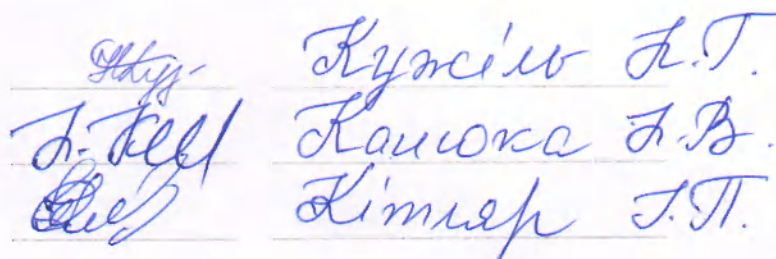 Кужіль Н.Г.
Канюка Н.В.
Кітляр І.П.